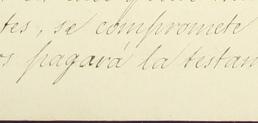 tes, se compromete
os pagará la testam